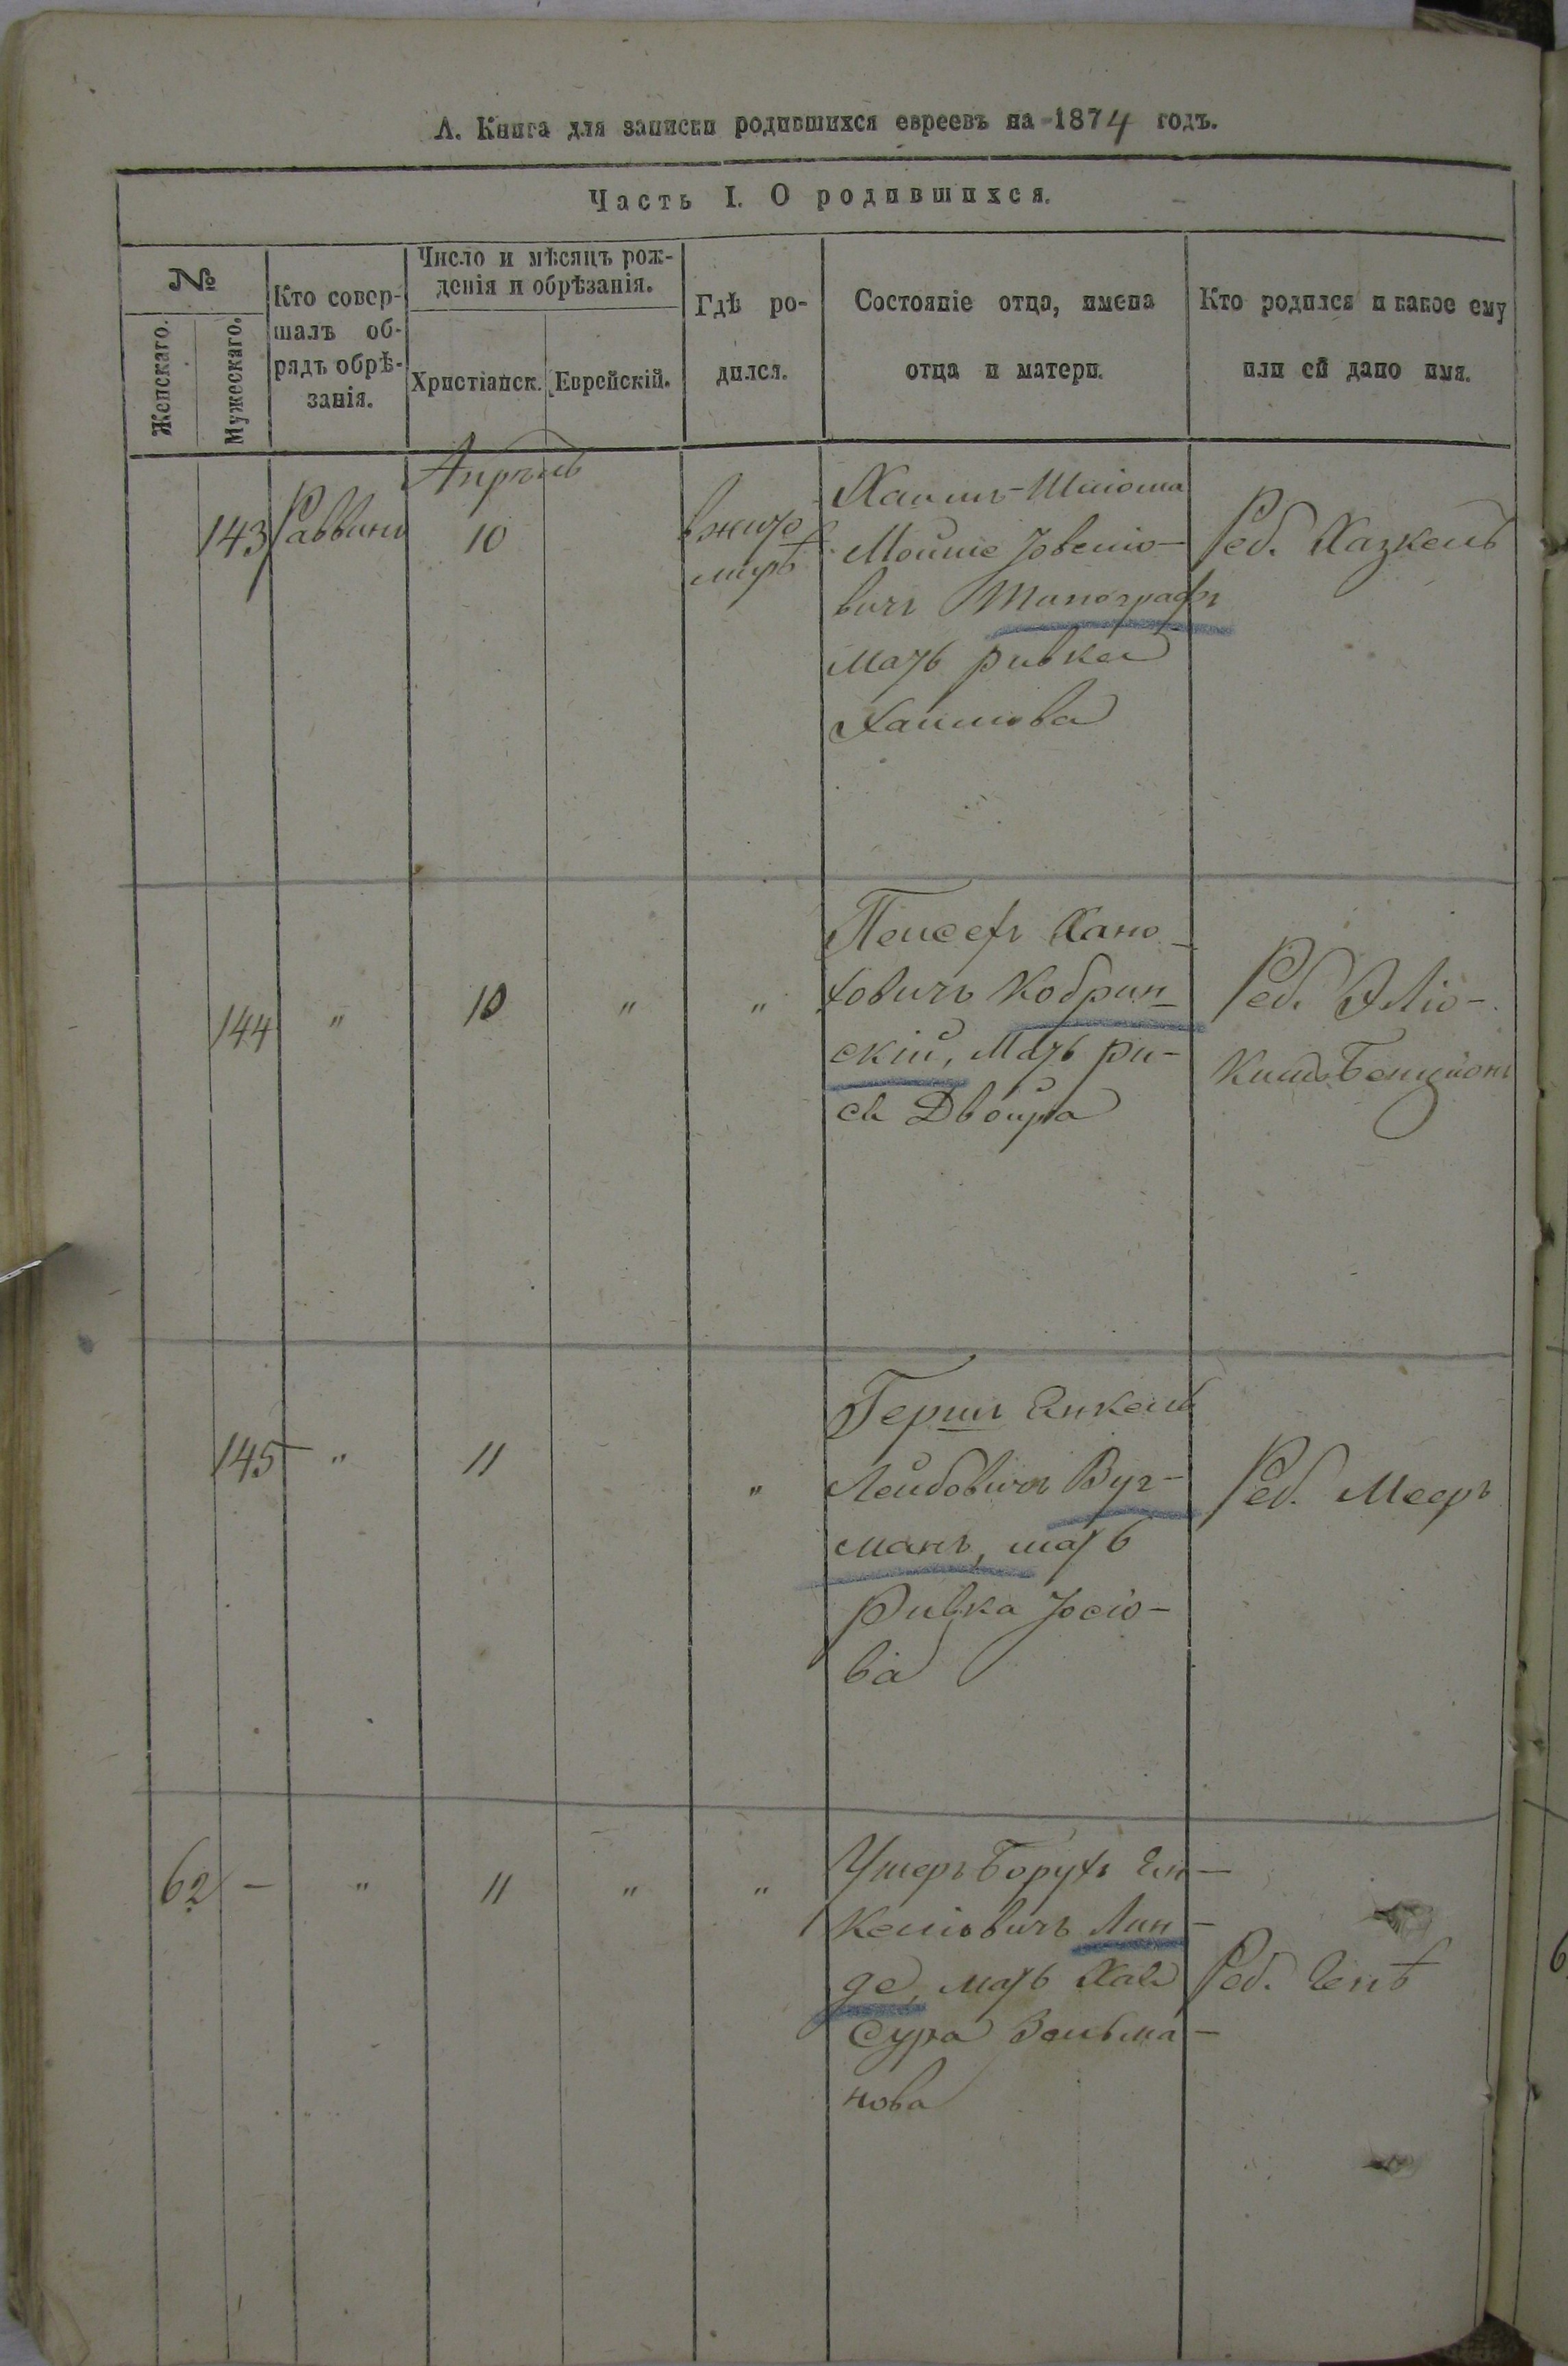 А. Книга для записки родившихся евреевъ на 1874 годъ.
Часть I. О родившихся.
№
Женскаго.
Мужескаго.
Кто совер-
шалъ об-
рядъ обрѣ-
занія.
Число и мѣсяцъ рож-
денія и обрѣзанія.
Христіанск.
Еврейскій.
Гдѣ ро-
дился.
Состояніе отца, имена
отца и матери.
Кто родился и какое ему
или ей дано имя.
Апрѣль
143
Раввинъ
10
в жито
мирѣ
Хаимъ-Шлиома
Мойше Іовелио-
вичъ Типографъ
мать ривка
Хаимова
Реб. Хазкель
144
"
10
"
"
Пейсехъ Хано-
ховичъ Кобрин-
скій, мать ри-
са Двойра
Реб. Эліо-
Кимъ Бенціонъ
145
"
11
"
Гершъ Янкель
Лейбовичъ Вуг-
манъ, мать
Ривка Іосіо-
ва
Реб. Мееръ
62
-
"
11
"
"
Ушеръ Борухъ Ян-
Келіовичъ Лин-
де, мать Хава
Сура Зельма-
нова
Реб.